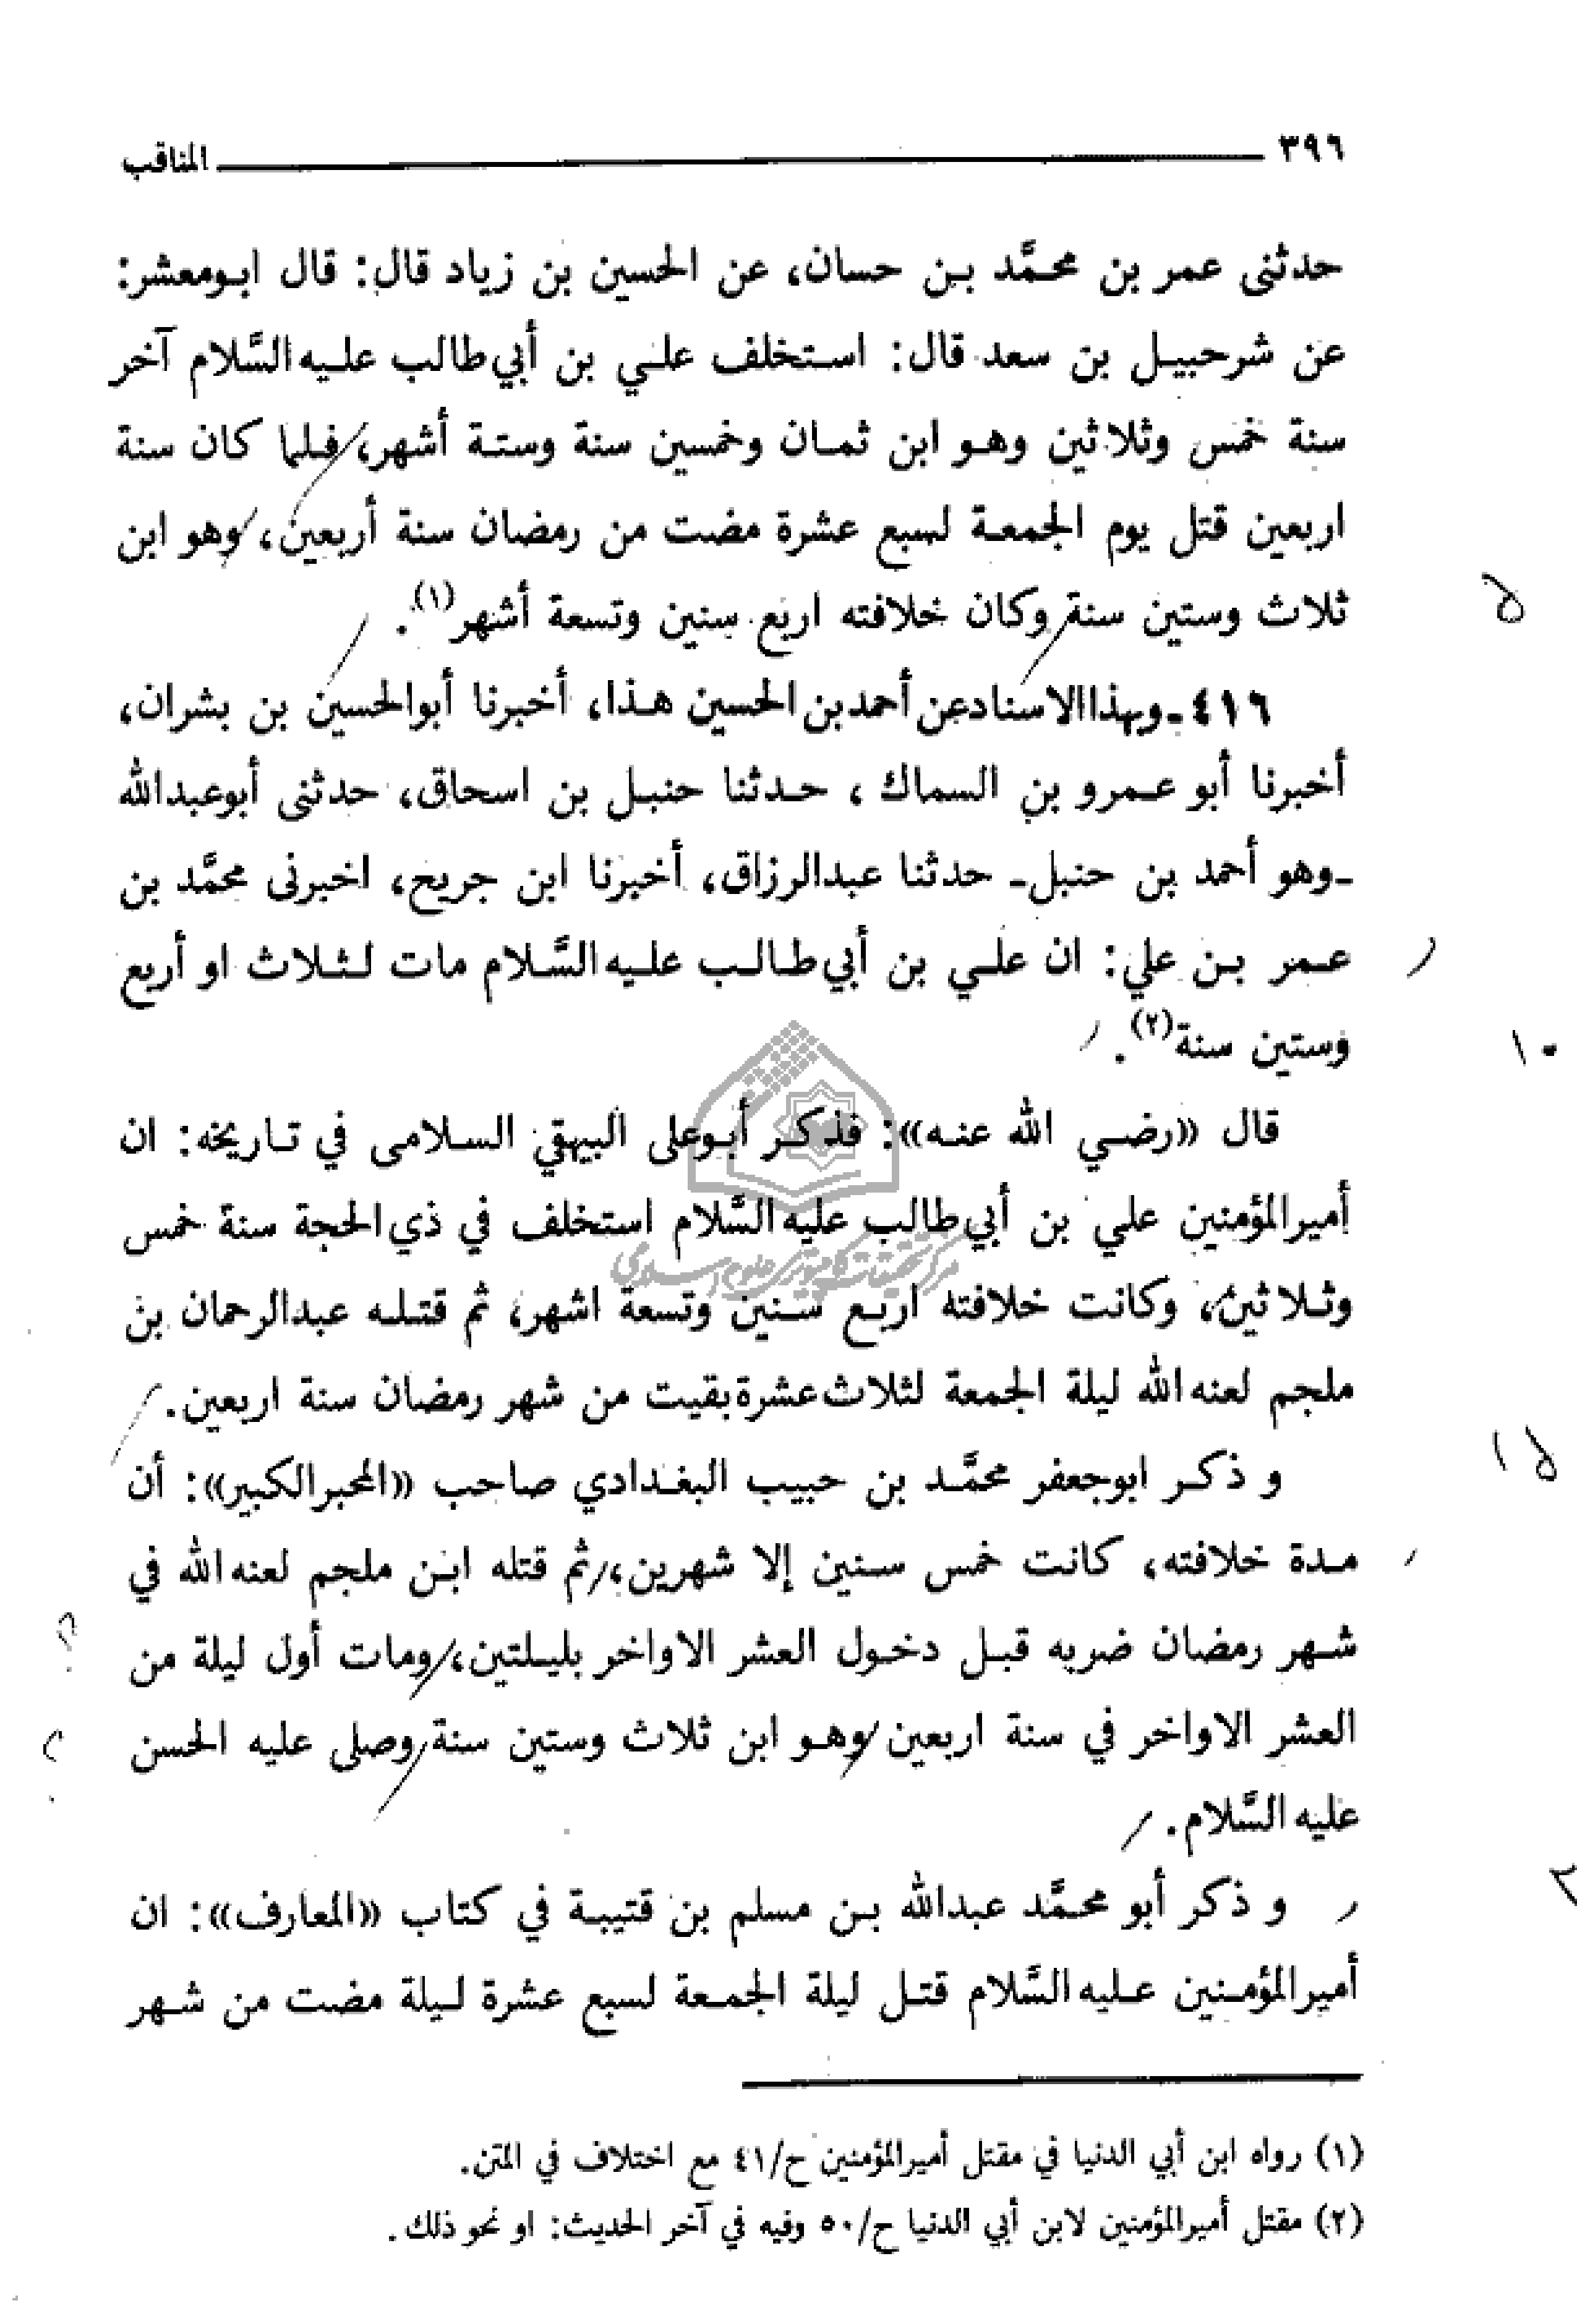 ٣٩٦ المناقب
حدثنى عمر بن محمَّد بـن حسان، عن الحسين بن زياد قال: قال ابـومعشر:
عن شرحبيـل بن سعد قال: استخلف علـي بن أبي‌طالب علـيه‌السَّلام آخر
سنة خمس وثلاثين وهـو ابن ثمـان وخمسين سنة وستـة أشهر، فـلما كان سنة
اربعين قتل يوم الجمعـة لسبع عشرة مضت من رمضان سنة أربعين، وهو ابن
ثلاث وستين سنة وكان خلافته اربع سنين وتسعة أشهر(١).
٤١٦ـ وبهذا الاسناد عن أحمد بن الحسين هـذا، أخبرنا أبوالحسين بن بشران،
أخبرنا أبو عـمرو بن السماك ، حـدثنا حنبـل بن اسحاق، حدثنى أبوعبدالله
ـ وهو أحمد بن حنبل ـ حدثنا عبدالرزاق، أخبرنا ابن جريح، اخبرنى محمَّد بن
عـمر بـن علي: ان علـي بن أبي‌طـالـب علـيه‌السَّـلام مات لـثـلاث او أربع
وستين سنة(٢).
قال «رضـي الله عنـه»: فذكـر أبـوعلى البيهقي السـلامى في تـاريخه: ان
أميرالمؤمنين علي بن أبي‌طالب عليه‌السَّلام استخلف في ذي‌الحجة سنة خمس
وثـلاثين، وكانت خلافته اربـع سـنين وتسعة اشهر، ثم قتـلـه عبدالرحمان بن
ملجم لعنه‌الله ليلة الجمعة لثلاث‌عشرة بقيت من شهر رمضان سنة اربعين.
و ذكـر ابوجعفر محمَّـد بن حبيب البغـدادي صاحب «المحبرالكبير»: أن
مـدة خلافته، كانت خمس سـنين إلا شهرين، ثم قتله ابـن ملجم لعنه‌الله في
شـهر رمضان ضربه قبـل دخـول العشر الاواخر بليـلتين، ومات أول ليلة من
العشر الاواخر في سنة اربعين وهـو ابن ثلاث وستين سنة وصلى عليه الحسن
عليه السَّلام.
و ذكر أبو محمَّد عبدالله بـن مسلم بن قتيبـة في كتاب «المعارف»: ان
أميرالمؤمـنين عـليه‌السَّلام قتـل ليلة الجمـعة لسبع عشرة لـيلة مضت من شـهر
(١) رواه ابن أبي الدنيا في مقتل أميرالمؤمنين ح/٤١ مع اختلاف في المتن.
(٢) مقتل أميرالمؤمنين لابن أبي الدنيا ح/٥٠ وفيه في آخر الحديث: او نحو ذلك.
مركز تحقيقات كامپيوترى علوم اسلامى
٥
١٠
١٥
٢